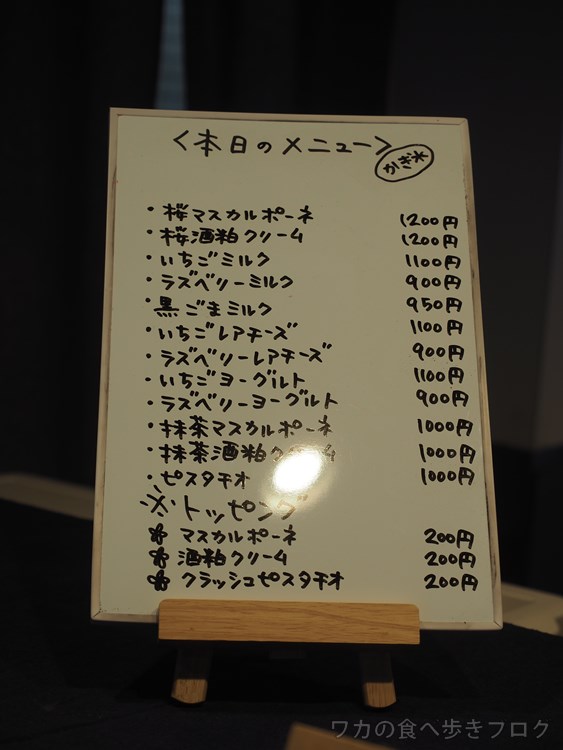 <本日のメニュー>
かき氷
・桜マスカルポーネ 1200円
・桜酒粕クリーム 1200円
・いちごミルク 1100円
・ラズベリーミルク 900円
・黒ごまミルク 950円
・いちごレアチーズ 1100円
・ラズベリーレアチーズ 900円
・いちごヨーグルト 1100円
・ラズベリーヨーグルト 900円
・抹茶マスカルポーネ 1000円
・抹茶酒粕クリーム 1000円
・ピスタチオ 1000円
※トッピング
マスカルポーネ 200円
酒粕クリーム 200円
クラッシュピスタチオ 200円
ワカの食べ歩きブログ